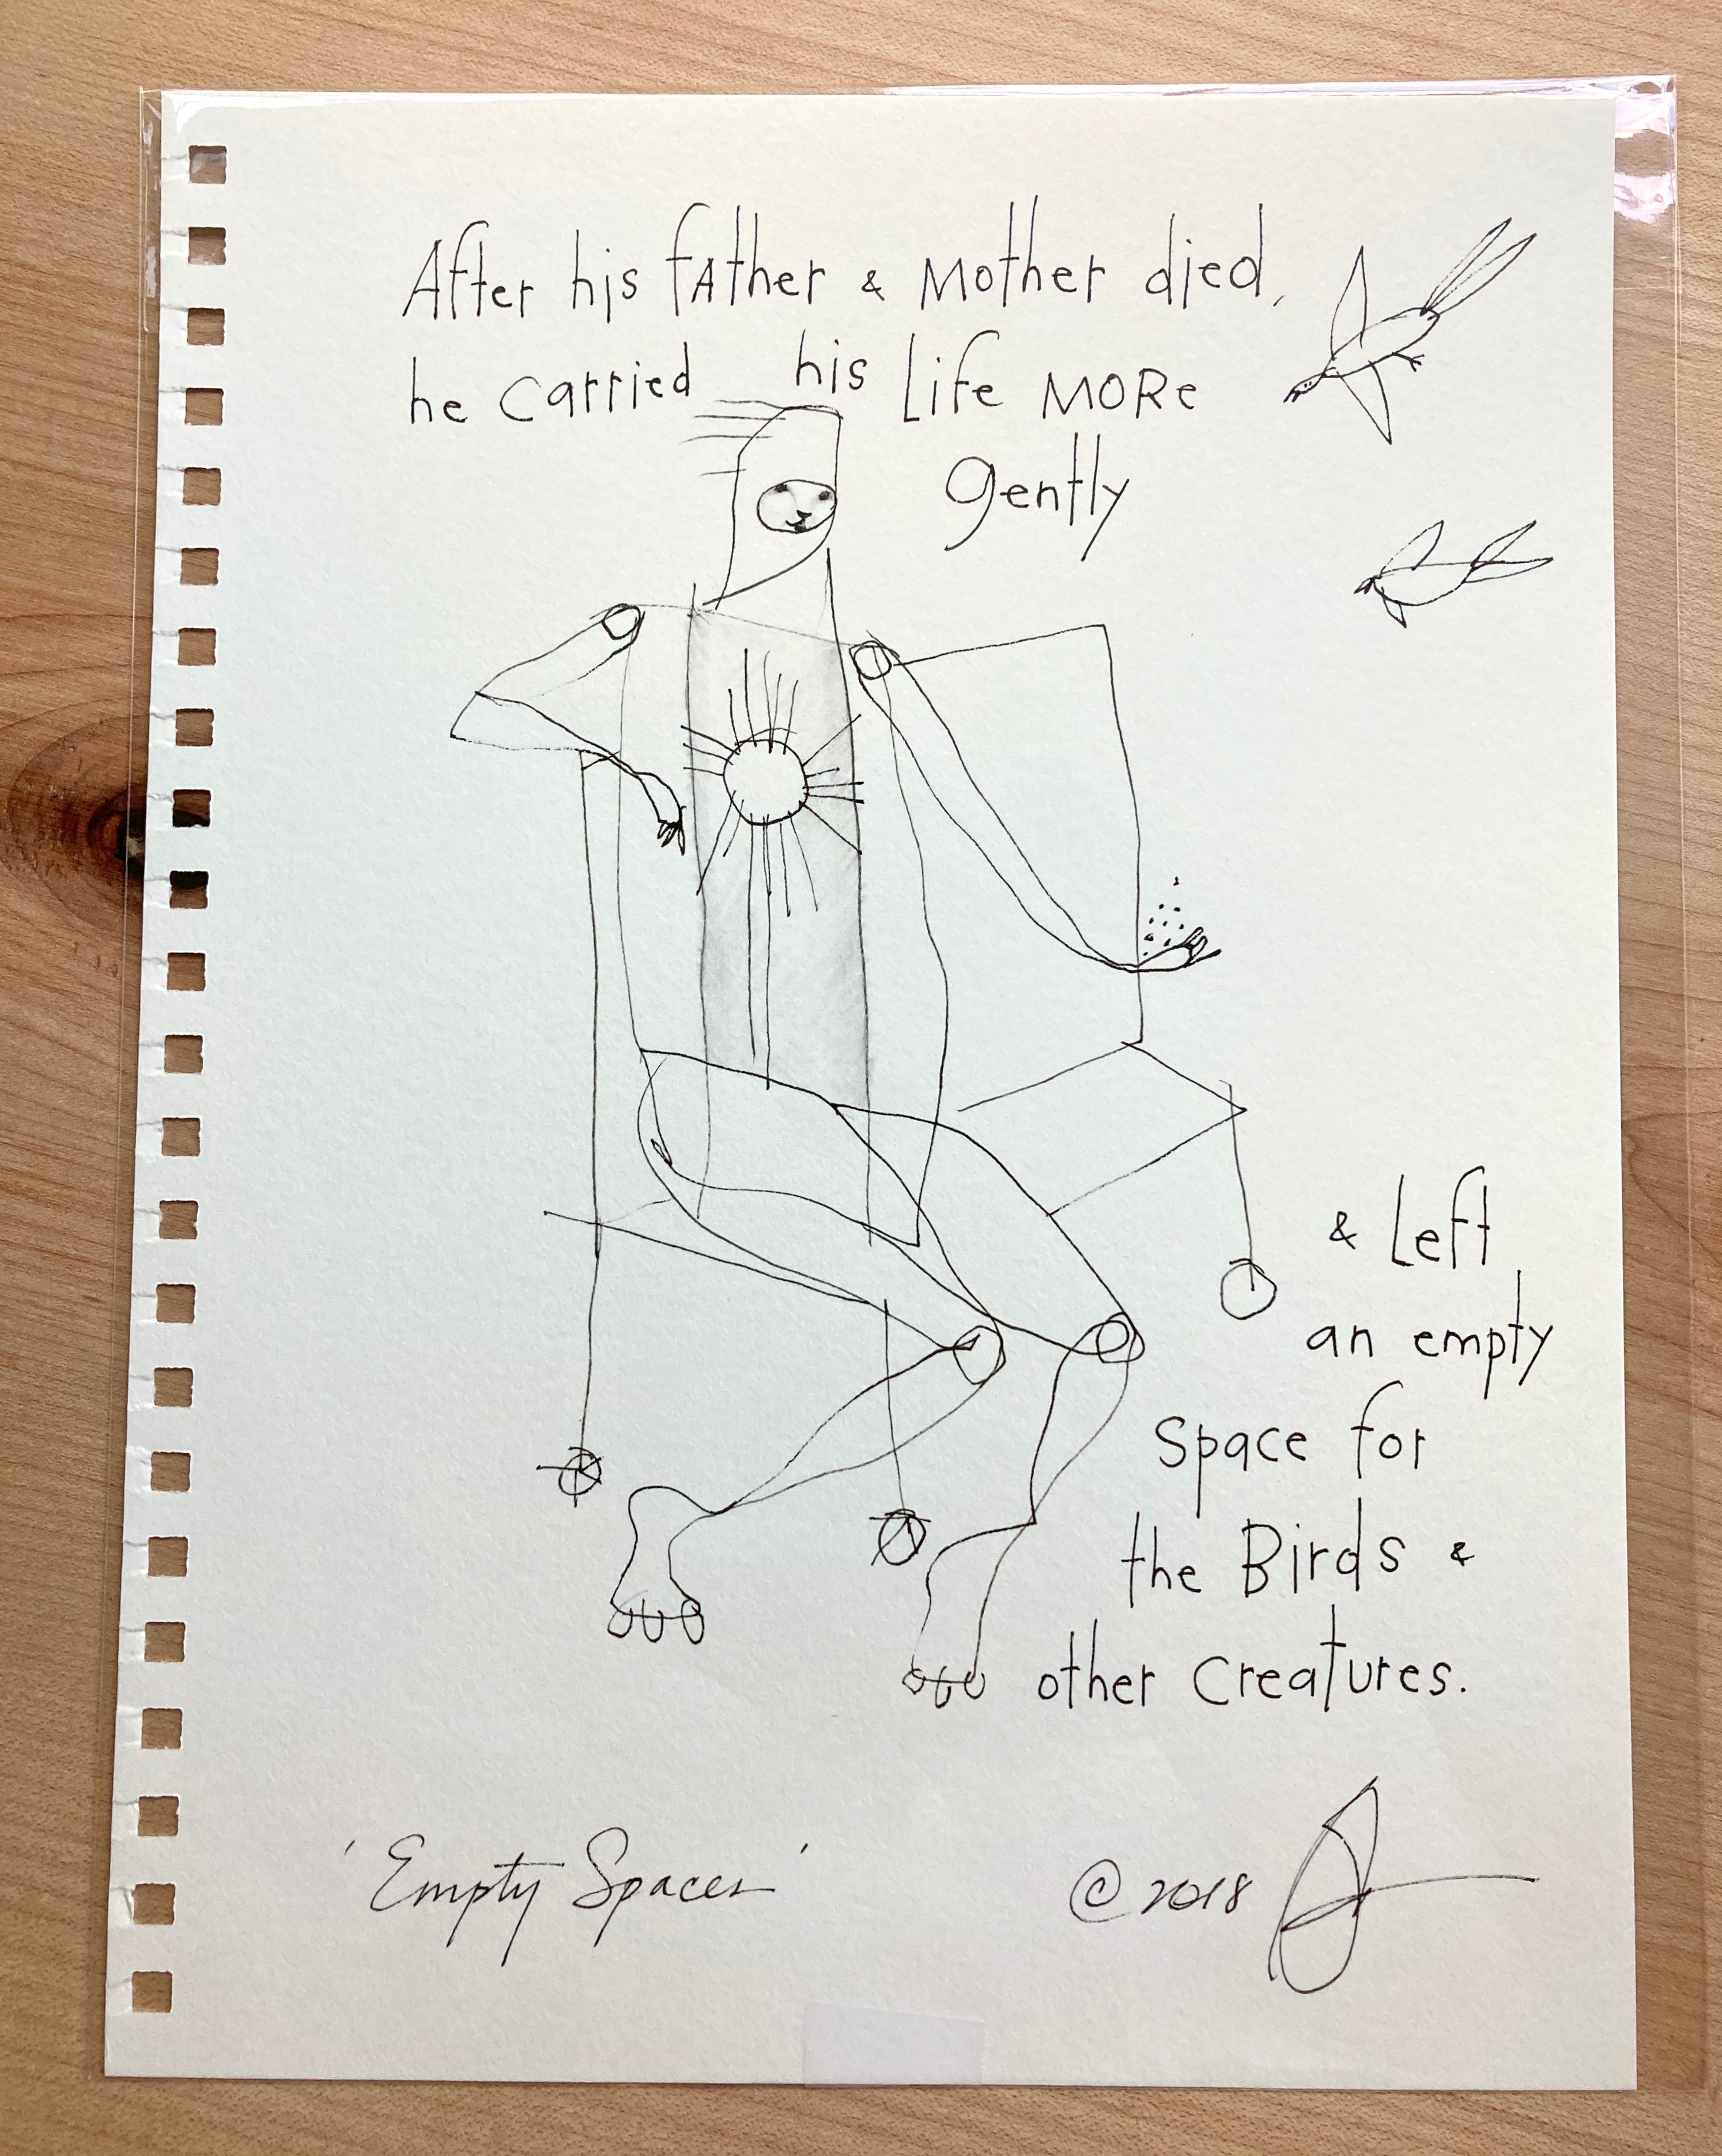 After his fAther & Mother died,
he carried his Life MORe
gently
& Left
an empty
Space for
the Birds &
other Creatures.
'Empty Spaces'
© 2018